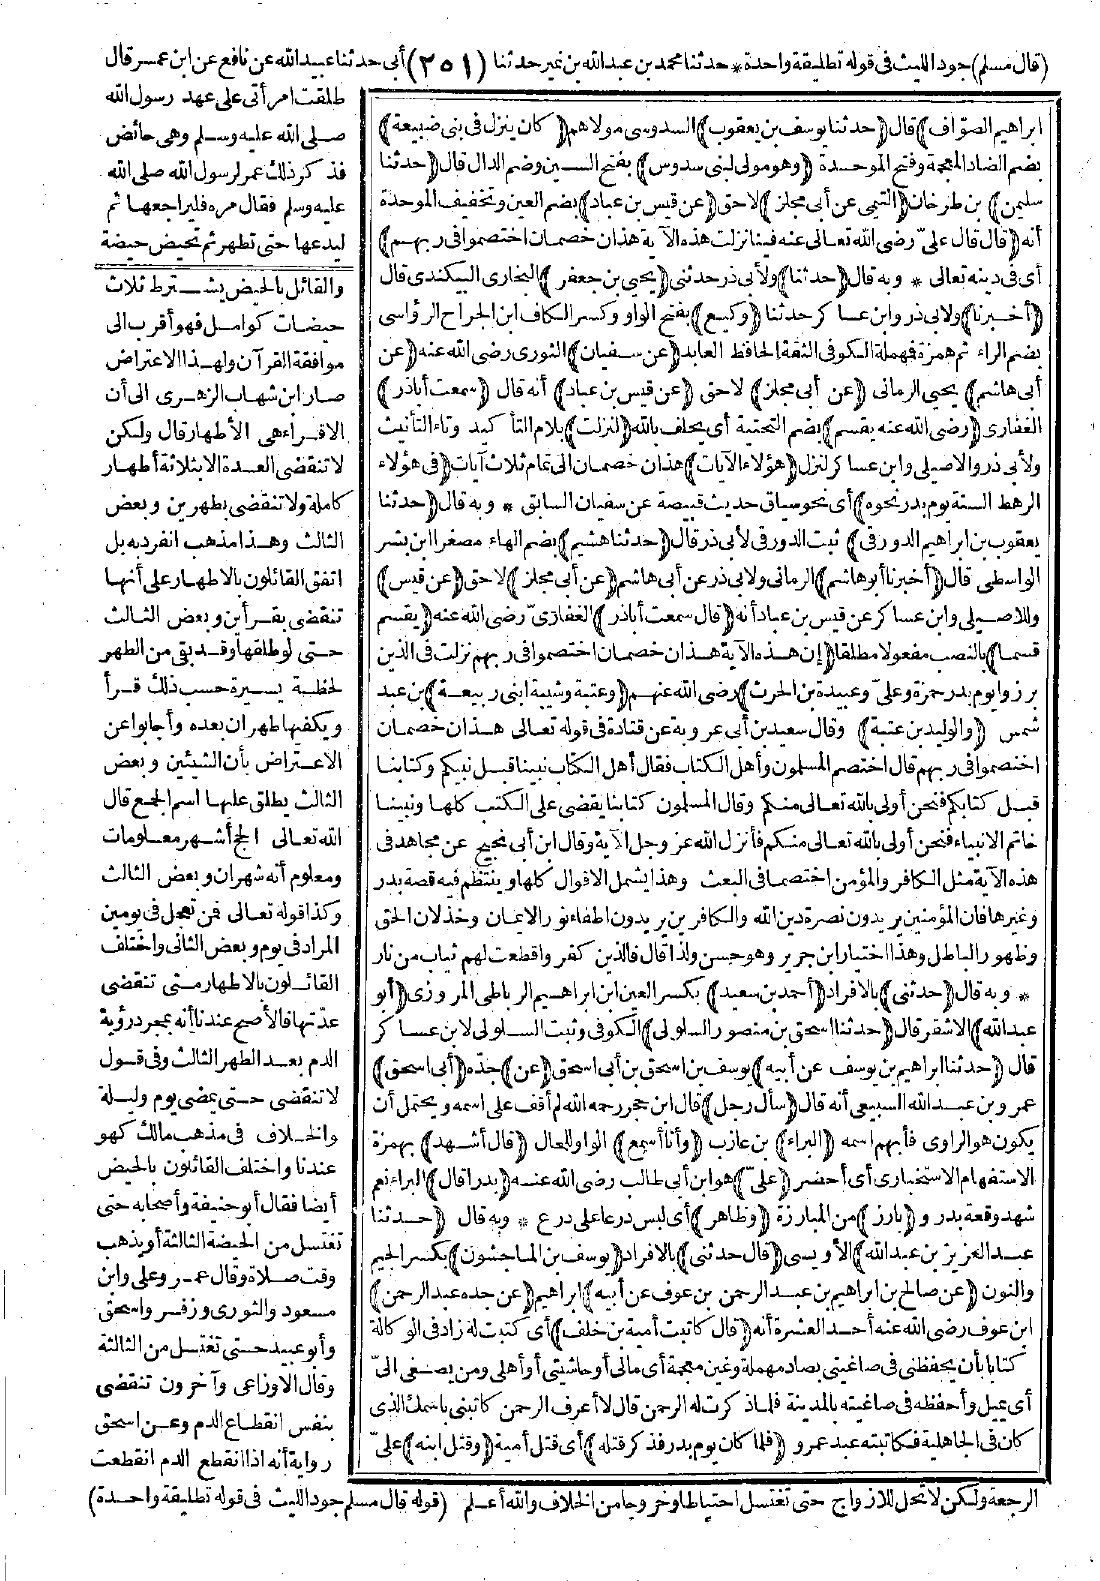 (قال مسلم) جود الليث فى قوله تطليقة واحدة * حدثنا محمد بن عبد الله بن نمير حدثنا (٢٥١) أبى حدثنا عبيد الله عن نافع عن ابن عمر قال
طلقت امرأتى على عهد رسول الله
صلى الله عليه وسلم وهى حائض
فذكر ذلك عمر لرسول الله صلى الله
عليه وسلم فقال مره فليراجعها ثم
ليدعها حتى تطهر ثم تحيض حيضة
ابراهيم الصوّاف) قال (حدثنا يوسف بن يعقوب) السدوسى مولاهم (كان ينزل فى بنى ضبيعة)
بضم الضاد المعجمة وفتح الموحدة (وهو مولى لبنى سدوس) بفتح السين وضم الدال قال (حدثنا
سليمن) بن طرخان (التيمى عن أبى مجلز) لاحق (عن قيس بن عباد) بضم العين وتخفيف الموحدة
أنه (قال قال علىّ رضى الله تعالى عنه فينا نزلت هذه الآية هذان خصمان اختصموا فى ربهم)
أى فى دينه تعالى * وبه قال (حدثنا) ولأبى ذر حدثنى (يحيى بن جعفر) البخارى البيكندى قال
(أخبرنا) ولابى ذر وابن عساكر حدثنا (وكيع) بفتح الواو وكسر الكاف ابن الجراح الرؤاسى
بضم الراء ثم همزة فهملة الكوفى الثقة الحافظ العابد (عن سفيان) الثورى رضى الله عنه (عن
أبى هاشم) يحيى الرمانى (عن أبى مجلز) لاحق (عن قيس بن عباد) أنه قال (سمعت أباذر)
الغفارى (رضى الله عنه يقسم) بضم التحتية أى يحلف بالله (لنزلت) بلام التأكيد وتاء التأنيث
ولأبى ذر والاصيلى وابن عساكر لنزل (هؤلاء الآيات) هذان خصمان الى تمام ثلاث آيات (فى هؤلاء
الرهط الستة يوم بدر نحوه) أى نحو سياق حديث قبيصة عن سفيان السابق * وبه قال (حدثنا
يعقوب بن ابراهيم الدورقى) ثبت الدورقى لأبى ذر قال (حدثنا هشيم) بضم الهاء مصغرا ابن بشر
الواسطى قال (أخبرنا أبو هاشم) الرمانى ولابى ذر عن أبى هاشم (عن أبى مجلز) لاحق (عن قيس)
وللاصيلى وابن عساكر عن قيس بن عباد أنه (قال سمعت أباذر) الغفارىّ رضى الله عنه (يقسم
قسما) بالنصب مفعولا مطلقا (إن هذه الآية هذان خصمان اختصموا فى ربهم نزلت فى الذين
برزوا يوم بدر حمزة وعلىّ وعبيدة بن الحرث) رضى الله عنهم (وعتبة وشيبة ابنى ربيعة) بن عبد
شمس (والوليد بن عتبة) وقال سعيد بن أبى عروبة عن قتادة فى قوله تعالى هذان خصمان
اختصموا فى ربهم قال اختصم المسلمون وأهل الكتاب فقال أهل الكتاب نبينا قبل نبيكم وكتابنا
قبل كتابكم فنحن أولى بالله تعالى منكم وقال المسلمون كتابنا يقضى على الكتب كلها ونبينا
خاتم الانبياء فنحن أولى بالله تعالى منكم فأنزل الله عز وجل الآية وقال ابن أبى نجيح عن مجاهد فى
هذه الآية مثل الكافر والمؤمن اختصما فى البعث وهذا يشمل الاقوال كلها وينتظم فيه قصة بدر
وغيرها فان المؤمنين يريدون نصرة دين الله والكافرين يريدون اطفاء نور الايمان وخذلان الحق
وظهور الباطل وهذا اختيار ابن جرير وهو حسن ولذا قال فالذين كفروا قطعت لهم ثياب من نار
* وبه قال (حدثنى) بالافراد (أحمد بن سعيد) بكسر العين ابن ابراهيم الرباطى المروزى (أبو
عبد الله) الاشقر قال (حدثنا اسحق بن منصور السلولى) الكوفى وثبت السلولى لابن عساكر
قال (حدثنا ابراهيم بن يوسف عن أبيه) يوسف بن اسحق بن أبى اسحق (عن) جدّه (أبى اسحق)
عمرو بن عبد الله السبيعى أنه قال (سأل رجل) قال ابن حجر رحمه الله لم أقف على اسمه ويحتمل أن
يكون هو الراوى فأبهم اسمه (البراء) بن عازب (وأنا أسمع) الواو للحال (قال أشهد) بهمزة
الاستفهام الاستخبارى أى أحضر (علىّ) هو ابن أبى طالب رضى الله عنه (بدرا قال) البراء نعم
شهد وقعة بدر و(بارز) من المبارزة (وظاهر) أى لبس درعا على درع * وبه قال (حدثنا
عبد العزيز بن عبد الله) الأويسى (قال حدثنى) بالافراد (يوسف بن الماجشون) بكسر الجيم
والنون (عن صالح بن ابراهيم بن عبد الرحمن بن عوف عن أبيه) ابراهيم (عن جده عبد الرحمن)
ابن عوف رضى الله عنه أحد العشرة أنه (قال كاتبت أمية بن خلف) أى كتبت له زاد فى الوكالة
كتابا بأن يحفظنى فى صاغيتى بصاد مهملة وغين معجمة أى مالى أو حاشيتى أو أهلى ومن يصغى الىّ
أى يميل وأحفظه فى صاغيته بالمدينة فلما ذكرت له الرحمن قال لا أعرف الرحمن كاتبنى باسمك الذى
كان فى الجاهلية فكاتبته عبد عمرو (فلما كان يوم بدر فذكر قتله) أى قتل أمية (وقتل ابنه) علىّ
والقائل بالحيض يشترط ثلاث
حيضات كوامل فهو أقرب الى
موافقة القرآن ولهذا الاعتراض
صار ابن شهاب الزهرى الى أن
الاقراء هى الأطهار قال ولكن
لا تنقضى العدة الا بثلاثة أطهار
كاملة ولا تنقضى بطهرين وبعض
الثالث وهذا مذهب انفرد به بل
اتفق القائلون بالاطهار على أنها
تنقضى بقرأين وبعض الثالث
حتى لو طلقها وقد بقى من الطهر
لحظة يسيرة حسب ذلك قرأ
ويكفيها طهران بعده وأجابوا عن
الاعتراض بأن الشيئين وبعض
الثالث يطلق عليها اسم الجمع قال
الله تعالى الحج أشهر معلومات
ومعلوم أنه شهران وبعض الثالث
وكذا قوله تعالى فمن تعجل فى يومين
المراد فى يوم وبعض الثانى واختلف
القائلون بالاطهار متى تنقضى
عدّتها فالأصح عندنا أنه بمجرد رؤية
الدم بعد الطهر الثالث وفى قول
لا تنقضى حتى يمضى يوم وليلة
والخلاف فى مذهب مالك كهو
عندنا واختلف القائلون بالحيض
أيضا فقال أبو حنيفة وأصحابه حتى
تغتسل من الحيضة الثالثة أو يذهب
وقت صلاة وقال عمر وعلى وابن
مسعود والثورى وزفر واسحق
وأبو عبيد حتى تغتسل من الثالثة
وقال الاوزاعى وآخرون تنقضى
بنفس انقطاع الدم وعن اسحق
رواية أنه اذا انقطع الدم انقطعت
الرجعة ولكن لا تحل للازواج حتى تغتسل احتياطا وخروجا من الخلاف والله أعلم (قوله قال مسلم جود الليث فى قوله تطليقة واحدة)